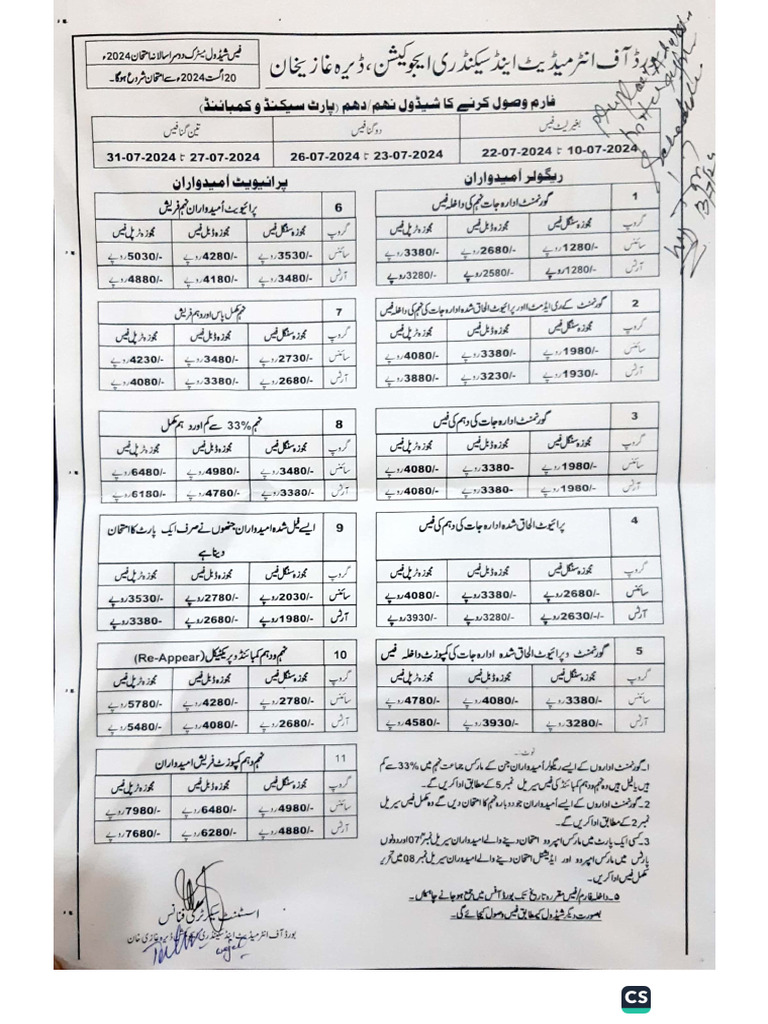 بورڈ آف انٹرمیڈیٹ اینڈ سیکنڈری ایجوکیشن، ڈیرہ غازیخان
فیس شیڈول میٹرک دوسرا سالانہ امتحان 2024ء
20 اگست 2024ء سے امتحان شروع ہوگا۔
فارم وصول کرنے کا شیڈول نہم/دھم (پارٹ سیکنڈ و کمبائنڈ)
بغیر لیٹ فیس دوگنا فیس تین گنا فیس
10-07-2024 تا 22-07-2024 23-07-2024 تا 26-07-2024 27-07-2024 تا 31-07-2024
ریگولر اُمیدواران
1 گورنمنٹ ادارہ جات نہم کی داخلہ فیس
گروپ مجوزہ سنگل فیس مجوزہ ڈبل فیس مجوزہ ٹرپل فیس
سائنس 1280/-روپے 2680/-روپے 3380/-روپے
آرٹس 1280/-روپے 2580/-روپے 3280/-روپے
2 گورنمنٹ کے ری ایڈمٹ اور پرائیوٹ الحاق شدہ ادارہ جات کی نہم کی داخلہ فیس
گروپ مجوزہ سنگل فیس مجوزہ ڈبل فیس مجوزہ ٹرپل فیس
سائنس 1980/-روپے 3380/-روپے 4080/-روپے
آرٹس 1930/-روپے 3230/-روپے 3880/-روپے
3 گورنمنٹ ادارہ جات کی دہم کی فیس
گروپ مجوزہ سنگل فیس مجوزہ ڈبل فیس مجوزہ ٹرپل فیس
سائنس 1980/-روپے 3380- 4080/-روپے
آرٹس 1980/-روپے 3380- 4080/-روپے
4 پرائیوٹ الحاق شدہ ادارہ جات کی دہم کی فیس
گروپ مجوزہ سنگل فیس مجوزہ ڈبل فیس مجوزہ ٹرپل فیس
سائنس 2680/-روپے 3380/-روپے 4080/-روپے
آرٹس 2630/-/-روپے 3280/-روپے 3930/-روپے
5 گورنمنٹ و پرائیوٹ الحاق شدہ ادارہ جات کی کمپوزٹ داخلہ فیس
گروپ مجوزہ سنگل فیس مجوزہ ڈبل فیس مجوزہ ٹرپل فیس
سائنس 3380/-روپے 4080/-روپے 4780/-روپے
آرٹس 3280/-روپے 3930/-روپے 4580/-روپے
نوٹ:۔
1۔ گورنمنٹ اداروں کے ایسے ریگولر اُمیدواران جن کے مارکس جماعت نہم میں 33% سے کم
ہیں یا فیل ہیں وہ نہم و دہم کمبائنڈ کی فیس سیریل نمبر 5 کے مطابق ادا کریں گے۔
2۔ گورنمنٹ اداروں کے ایسے اُمیدواران جو دوبارہ نہم کا امتحان دیں گے وہ مکمل فیس سیریل
نمبر 2 کے مطابق ادا کریں گے۔
3۔ کسی ایک پارٹ میں مارکس امپروو امتحان دینے والے امیدواران سیریل نمبر 07 اور دونوں
پارٹس میں مارکس امپروو اور ایڈیشنل امتحان دینے والے امیدوران سیریل نمبر 08 میں تحریر
مکمل فیس ادا کریں۔
۵۔ داخلہ فارم/فیس مقررہ تاریخ تک بورڈ آفس میں جمع ہو جانے چاہئیں۔
بصورت دیگر شیڈول کیمطابق فیس وصول کیجائے گی۔
پرائیویٹ اُمیدواران
6 پرائیویٹ اُمیدواران نہم فریش
گروپ مجوزہ سنگل فیس مجوزہ ڈبل فیس مجوزہ ٹرپل فیس
سائنس 3530/-روپے 4280/-روپے 5030/-روپے
آرٹس 3480/-روپے 4180/-روپے 4880/-روپے
7 نہم مکمل پاس اور دہم فریش
گروپ مجوزہ سنگل فیس مجوزہ ڈبل فیس مجوزہ ٹرپل فیس
سائنس 2730/-روپے 3480/-روپے 4230/-روپے
آرٹس 2680/-روپے 3380/-روپے 4080/-روپے
8 نہم 33% سے کم اور دہم مکمل
گروپ مجوزہ سنگل فیس مجوزہ ڈبل فیس مجوزہ ٹرپل فیس
سائنس 3480/-روپے 4980/-روپے 6480/-روپے
آرٹس 3380/-روپے 4780/-روپے 6180/-روپے
9 ایسے فیل شدہ امیدواران جنھوں نے صرف ایک پارٹ کا امتحان
دینا ہے
گروپ مجوزہ سنگل فیس مجوزہ ڈبل فیس مجوزہ ٹرپل فیس
سائنس 2030/-روپے 2780/-روپے 3530/-روپے
آرٹس 1980/-روپے 2680/-روپے 3380-
10 نہم و دہم کمبائنڈ و پریکٹیکل (Re-Appear)
گروپ مجوزہ سنگل فیس مجوزہ ڈبل فیس مجوزہ ٹرپل فیس
سائنس 2780/-روپے 4280/-روپے 5780/-روپے
آرٹس 2680/-روپے 4080/-روپے 5480/-روپے
11 نہم و دہم کمپوزٹ فریش امیدواران
گروپ مجوزہ سنگل فیس مجوزہ ڈبل فیس مجوزہ ٹرپل فیس
سائنس 4980/-روپے 6480/-روپے 7980/-روپے
آرٹس 4880/-روپے 6280/-روپے 7680/-روپے
اسسٹنٹ سیکرٹری فنانس
بورڈ آف انٹرمیڈیٹ اینڈ سیکنڈری ڈیرہ غازی خان
CS